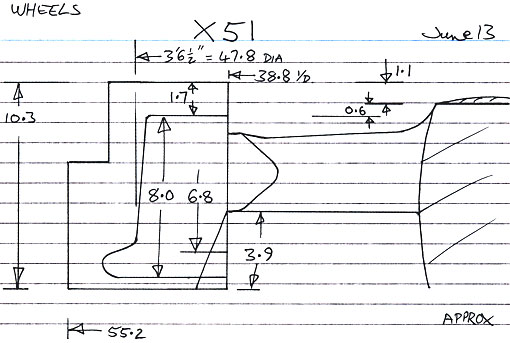 WHEELS
X51
June 13
3'6½" = 47.8 DIA
38.8 I/D
1.1
1.7
0.6
10.3
8.0
6.8
3.9
55.2
APPROX